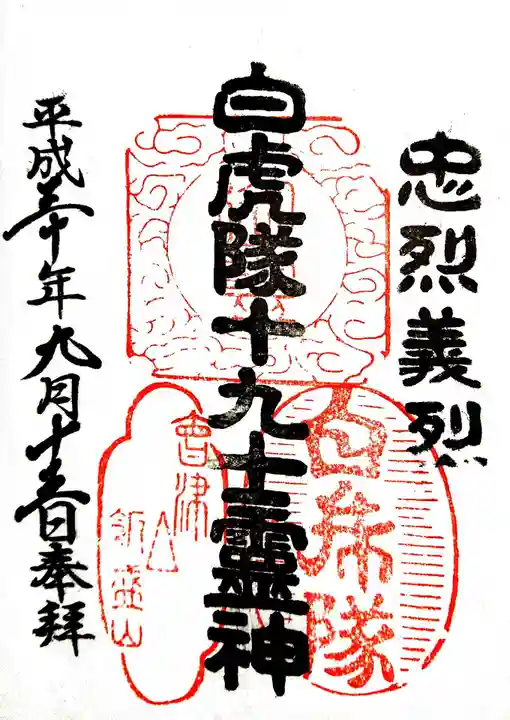 忠烈義烈
白虎隊十九士霊神
白虎隊
會津
飯盛山
平成三十年九月十三日奉拝